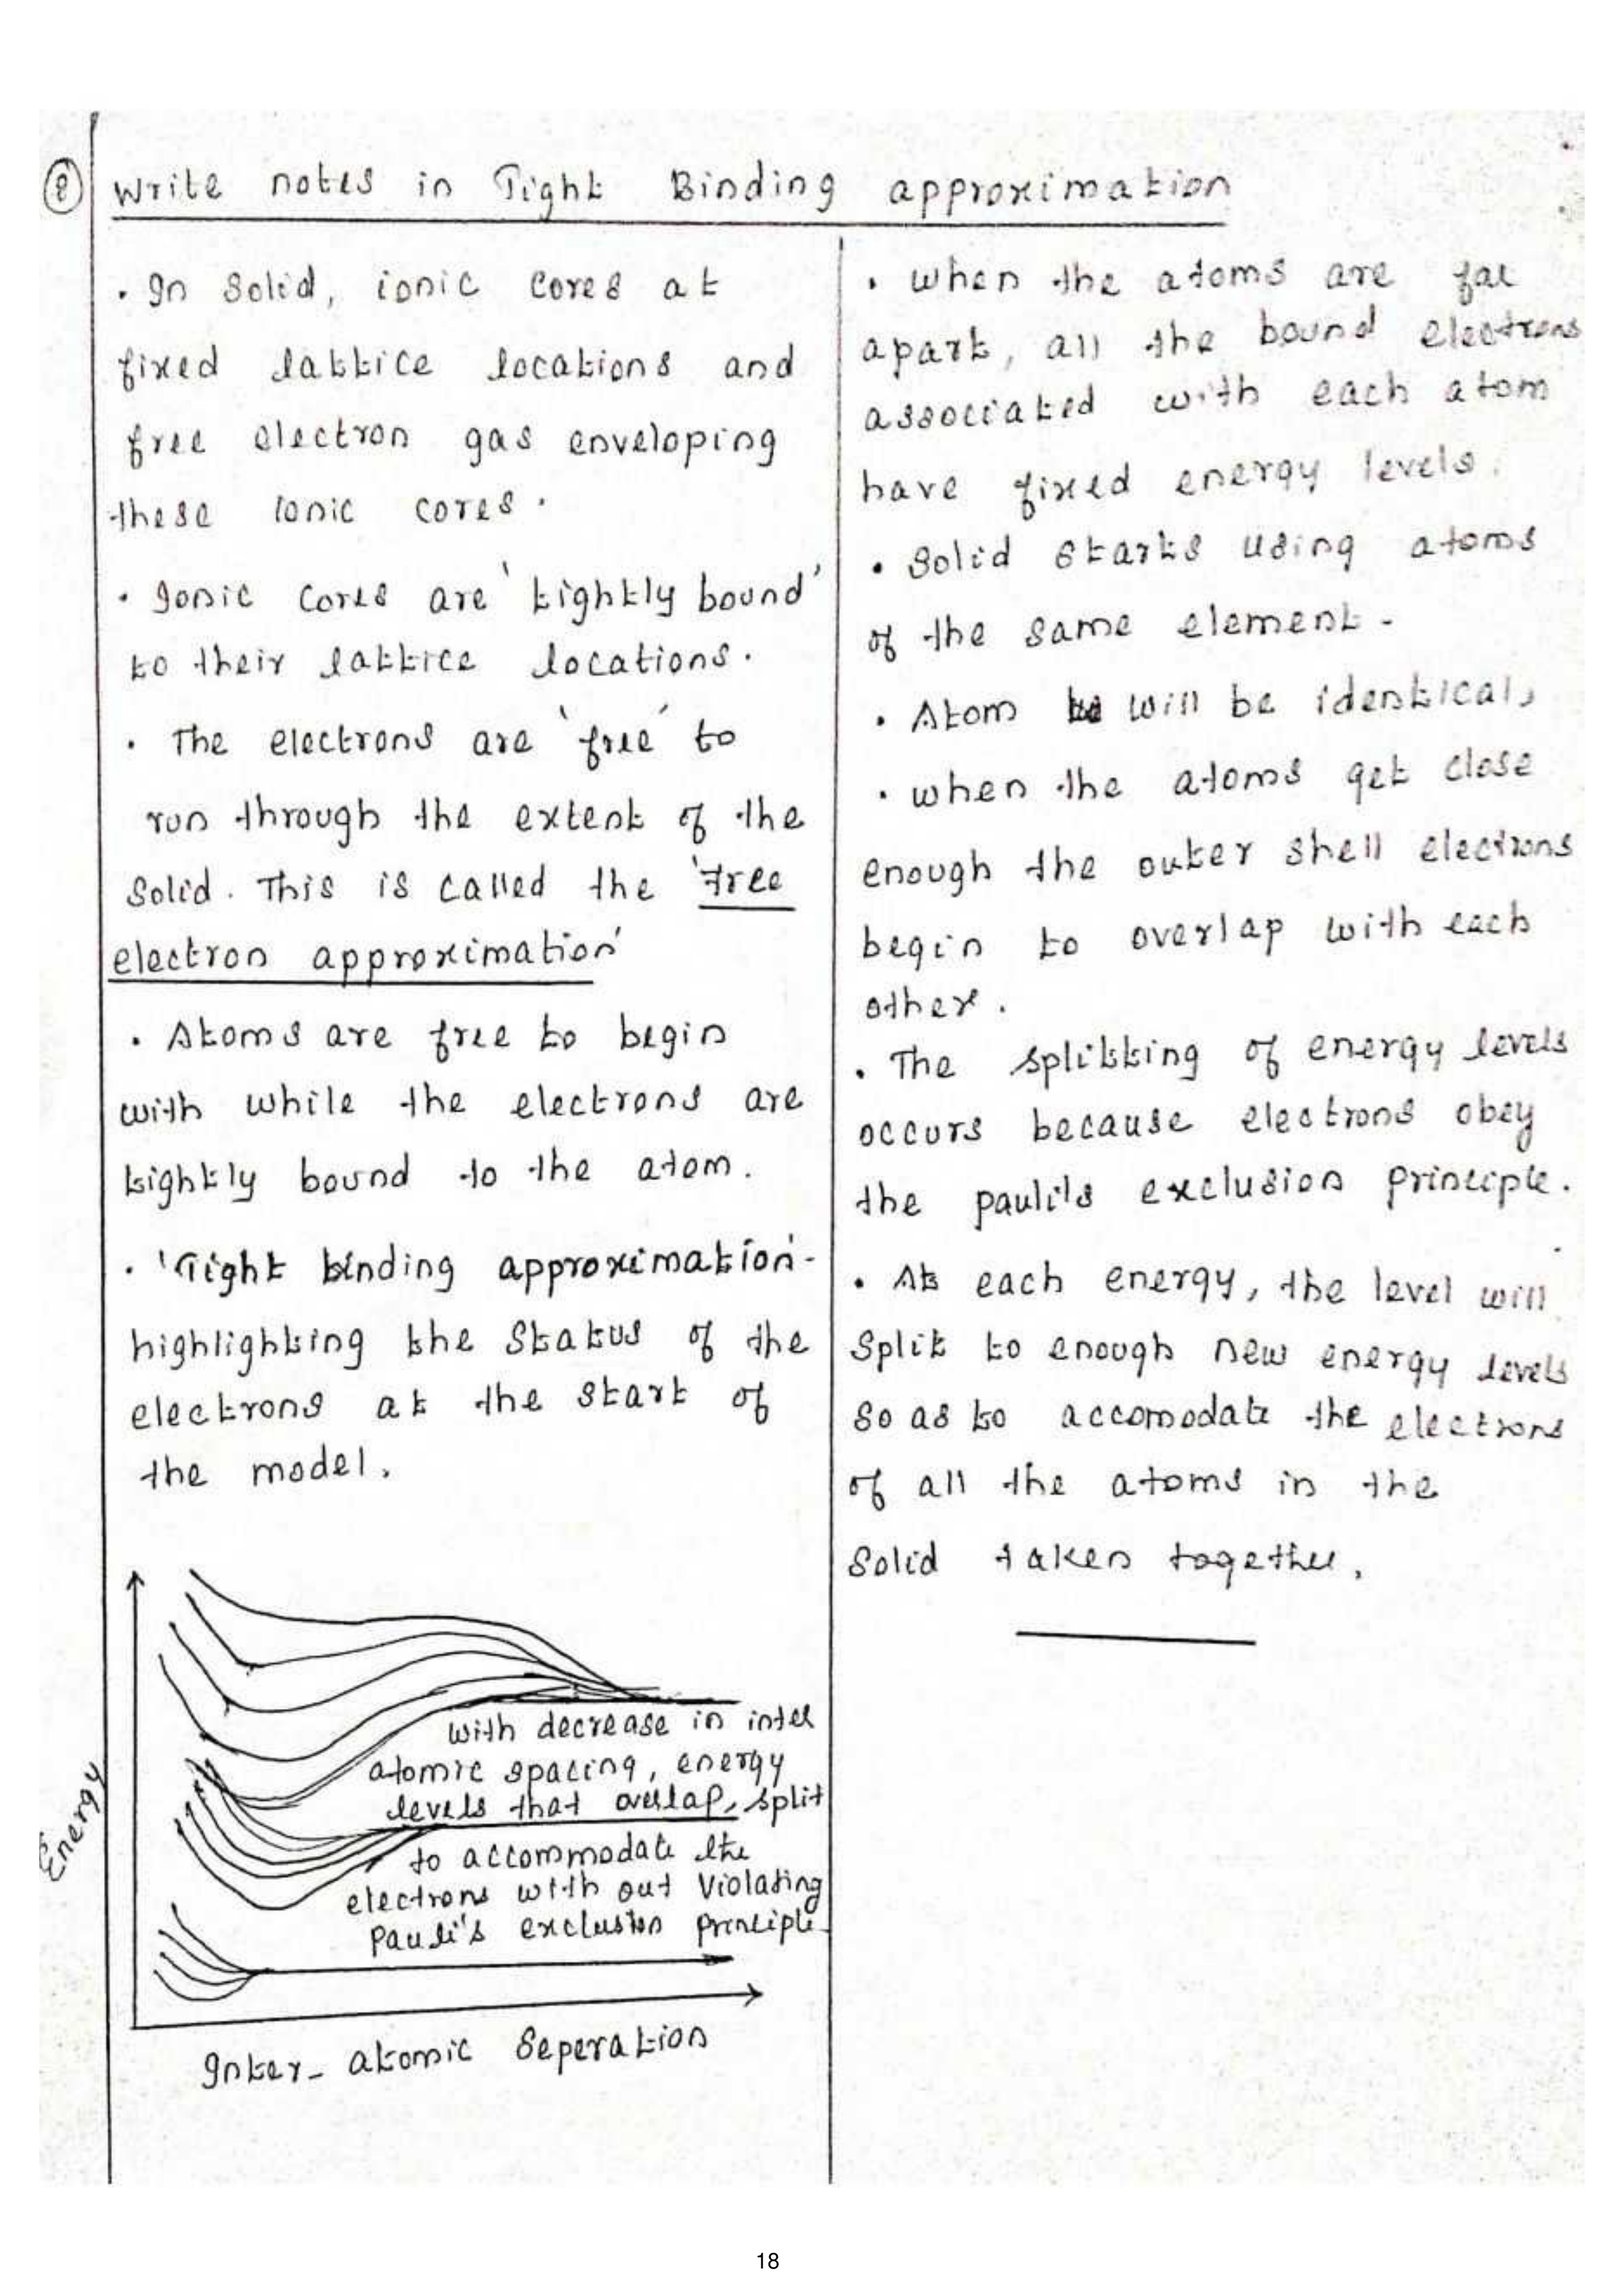 8 Write notes in Tight Binding approximation
. In Solid, ionic cores at
fixed lattice locations and
free electron gas enveloping
these ionic cores.
. Ionic cores are 'tightly bound'
to their lattice locations.
. The electrons are 'free' to
run through the extent of the
Solid. This is called the 'Free
electron approximation'
. Atoms are free to begin
with while the electrons are
tightly bound to the atom.
. 'Tight binding approximation'-
highlighting the Status of the
electrons at the start of
the model.
Energy
with decrease in inter
atomic spacing, energy
levels that overlap, split
to accommodate the
electrons with out Violating
Pauli's exclusion principle
Inter-atomic Seperation
. When the atoms are far
apart, all the bound electrons
associated with each atom
have fixed energy levels.
. Solid starts using atoms
of the same element.
. Atom will be identical,
. When the atoms get close
enough the outer shell electrons
begin to overlap with each
other.
. The splitting of energy levels
occurs because electrons obey
the pauli's exclusion principle.
. At each energy, the level will
Split to enough new energy levels
so as to accomodate the electrons
of all the atoms in the
Solid taken together.
18